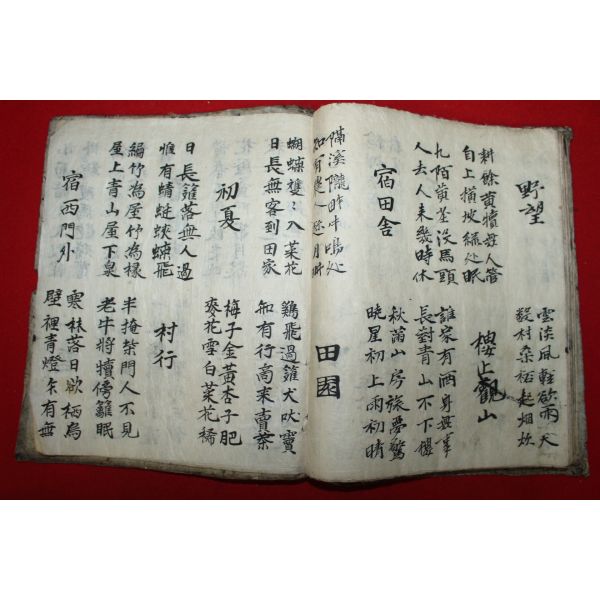 野望
雲淡風輕欲雨天
數村桑柘起烟炊
耕餘黃犢無人管
自上橫坡綠處眠
樓上觀山
九陌黃塵沒馬頭
人去人來幾時休
誰家有酒身無事
長對青山不下樓
宿田舍
秋蕭山房旅夢驚
曉星初上雨初晴
隔溪隴畔牛鳴处
知有農人趁月耕
田園
蝴蝶雙〻入菜花
日長無客到田家
鷄飛過籬犬吠竇
知有行商來賣茶
初夏
梅子金黃杏子肥
麥花雪白菜花稀
日長籬落無人過
惟有蜻蜓蛺蝶飛
村行
編竹為屋竹為椽
屋上青山屋下泉
半掩柴門人不見
老牛將犢傍籬眠
宿西門外
寒林落日欲栖烏
壁裡青燈乍有無